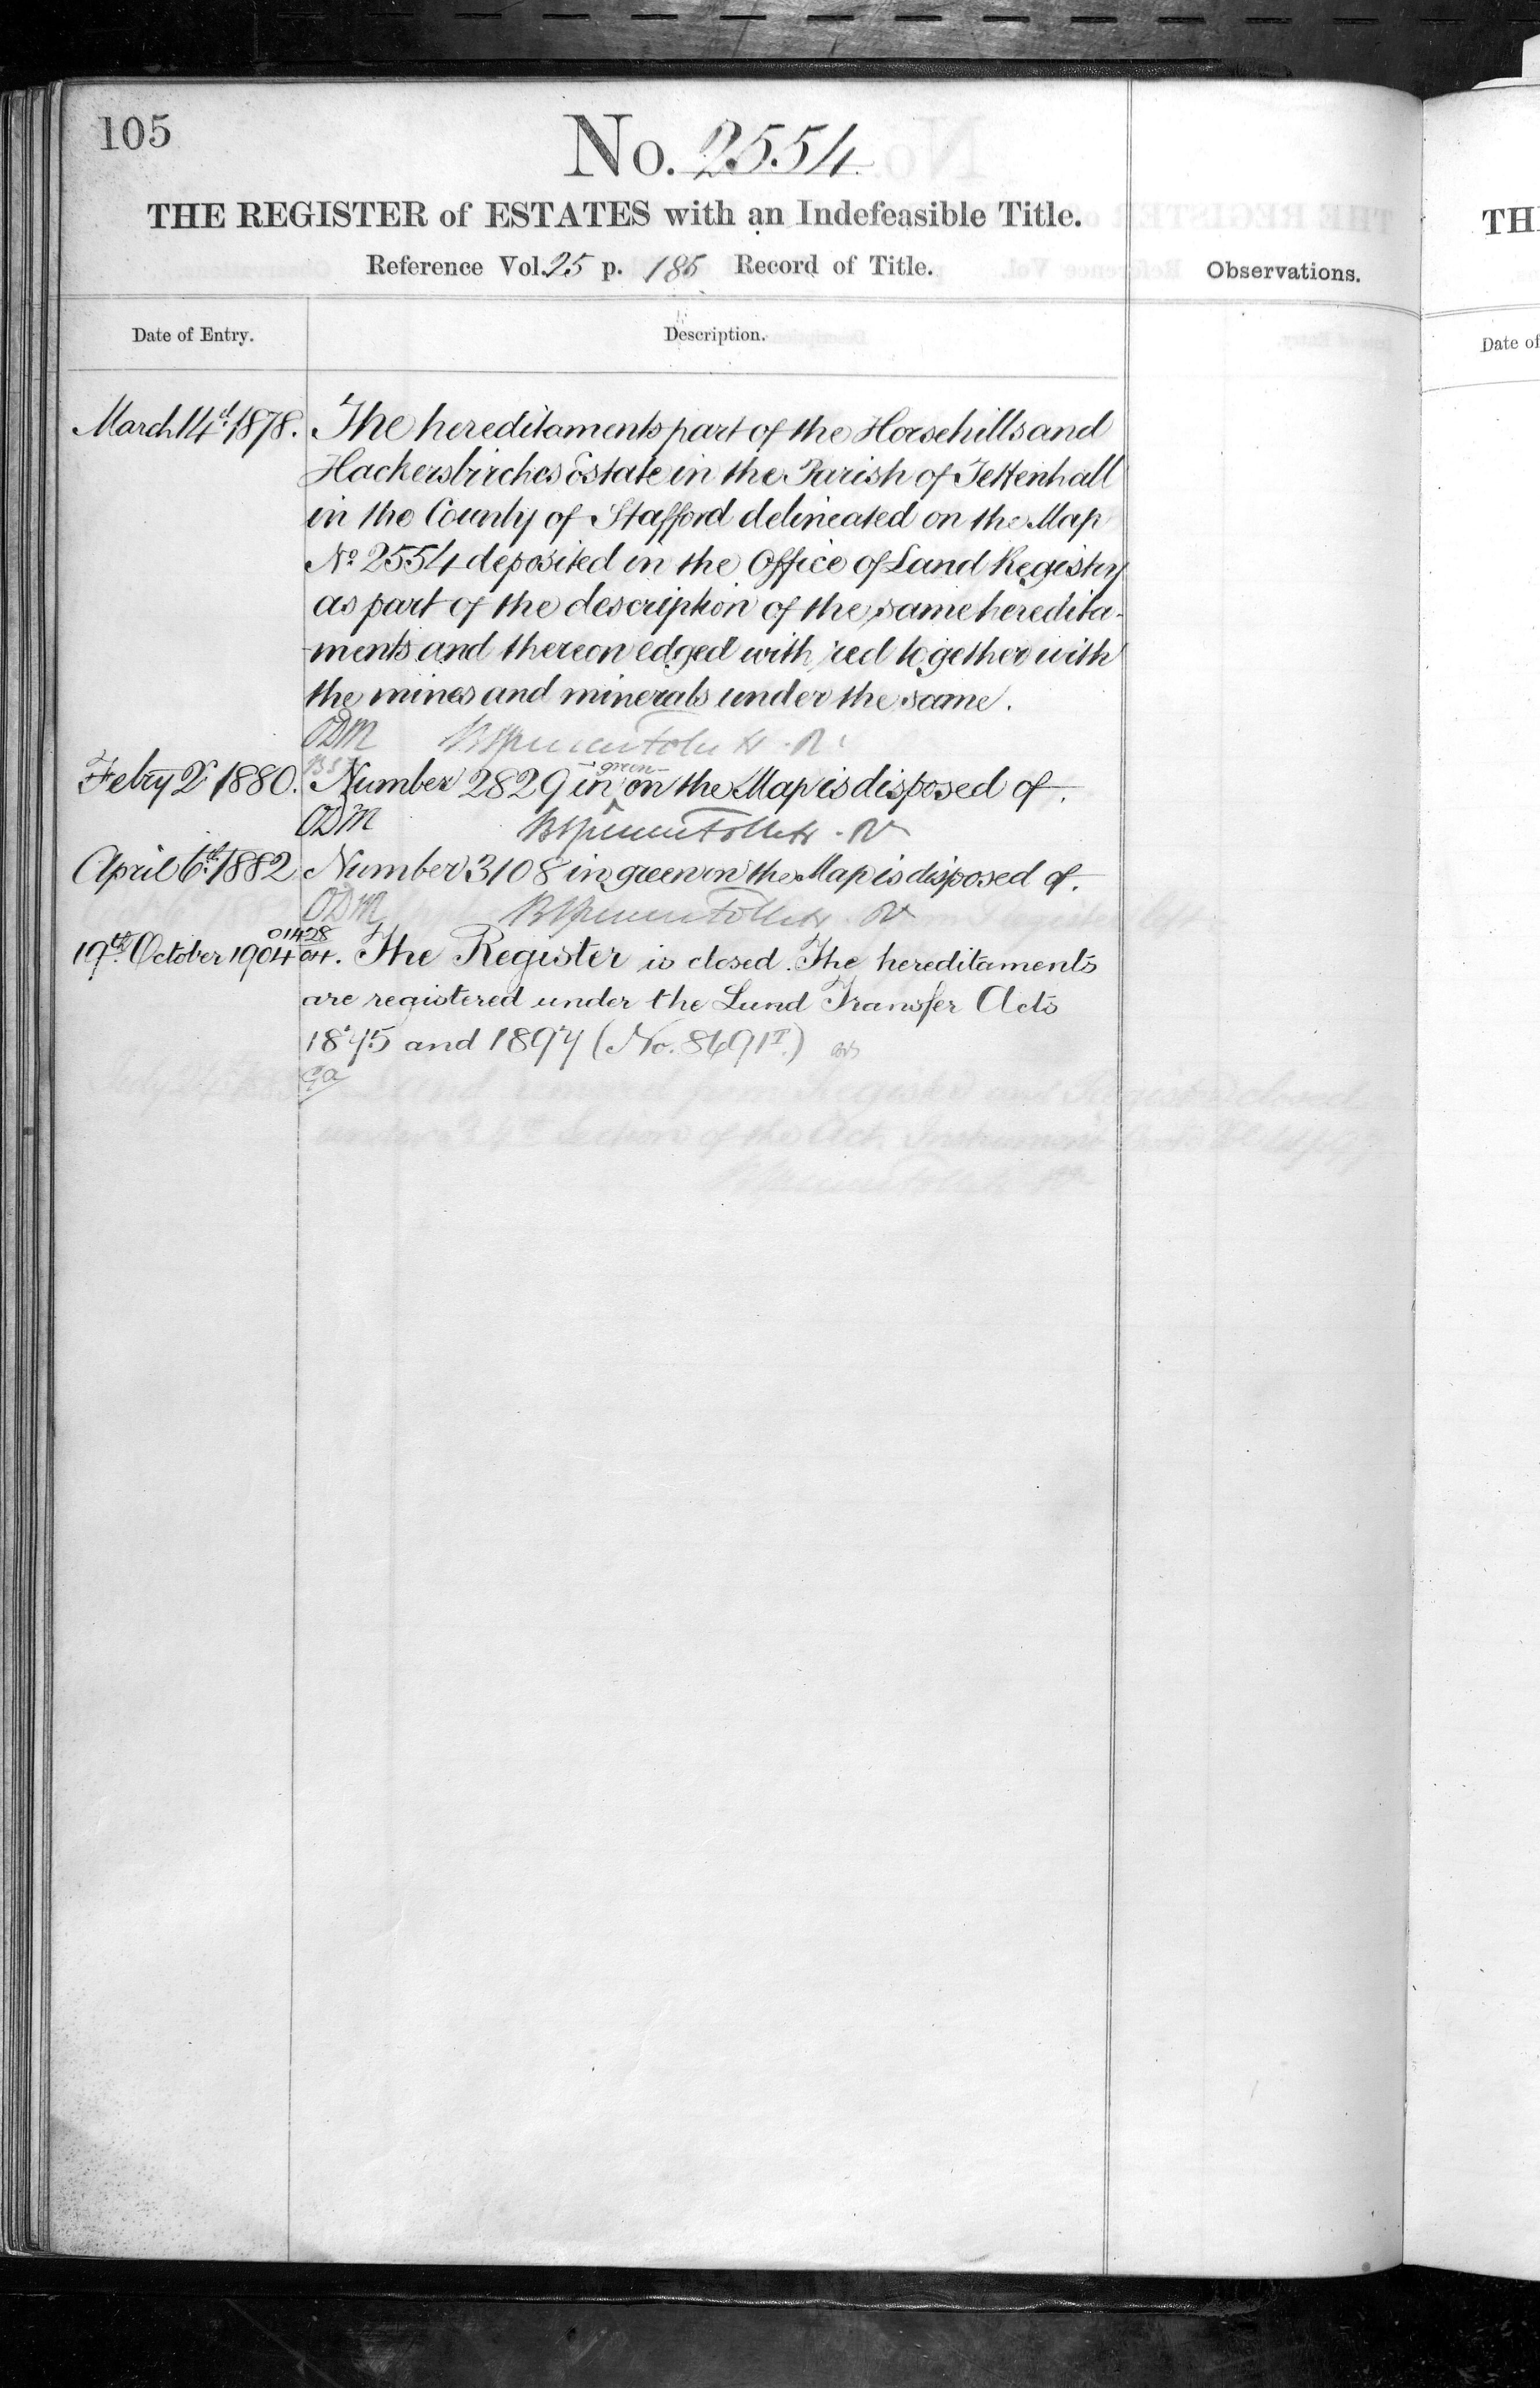 105
No. 2554
THE REGISTER of ESTATES with an Indefeasible Title.
Reference Vol. 25 p. 185 Record of Title.
Observations.
Date of Entry.
Description.
March 14th 1878. The hereditaments part of the Horsehills and
Hackersbirches Estate in the Parish of Tettenhall
in the County of Stafford delineated on the Map
No 2554 deposited in the Office of Land Registry
as part of the description of the same heredita-
ments and thereon edged with red together with
the mines and minerals under the same.
ODM
Febry 2d 1880. Number 2829 in green on the Map is disposed of.
ODM
April 6th 1882 Number 3108 in green on the Map is disposed of.
ODM
19th October 1904 01428/04. The Register is closed. The hereditaments
are registered under the Land Transfer Acts
1875 and 1897 (No. 8691
TH
Date of